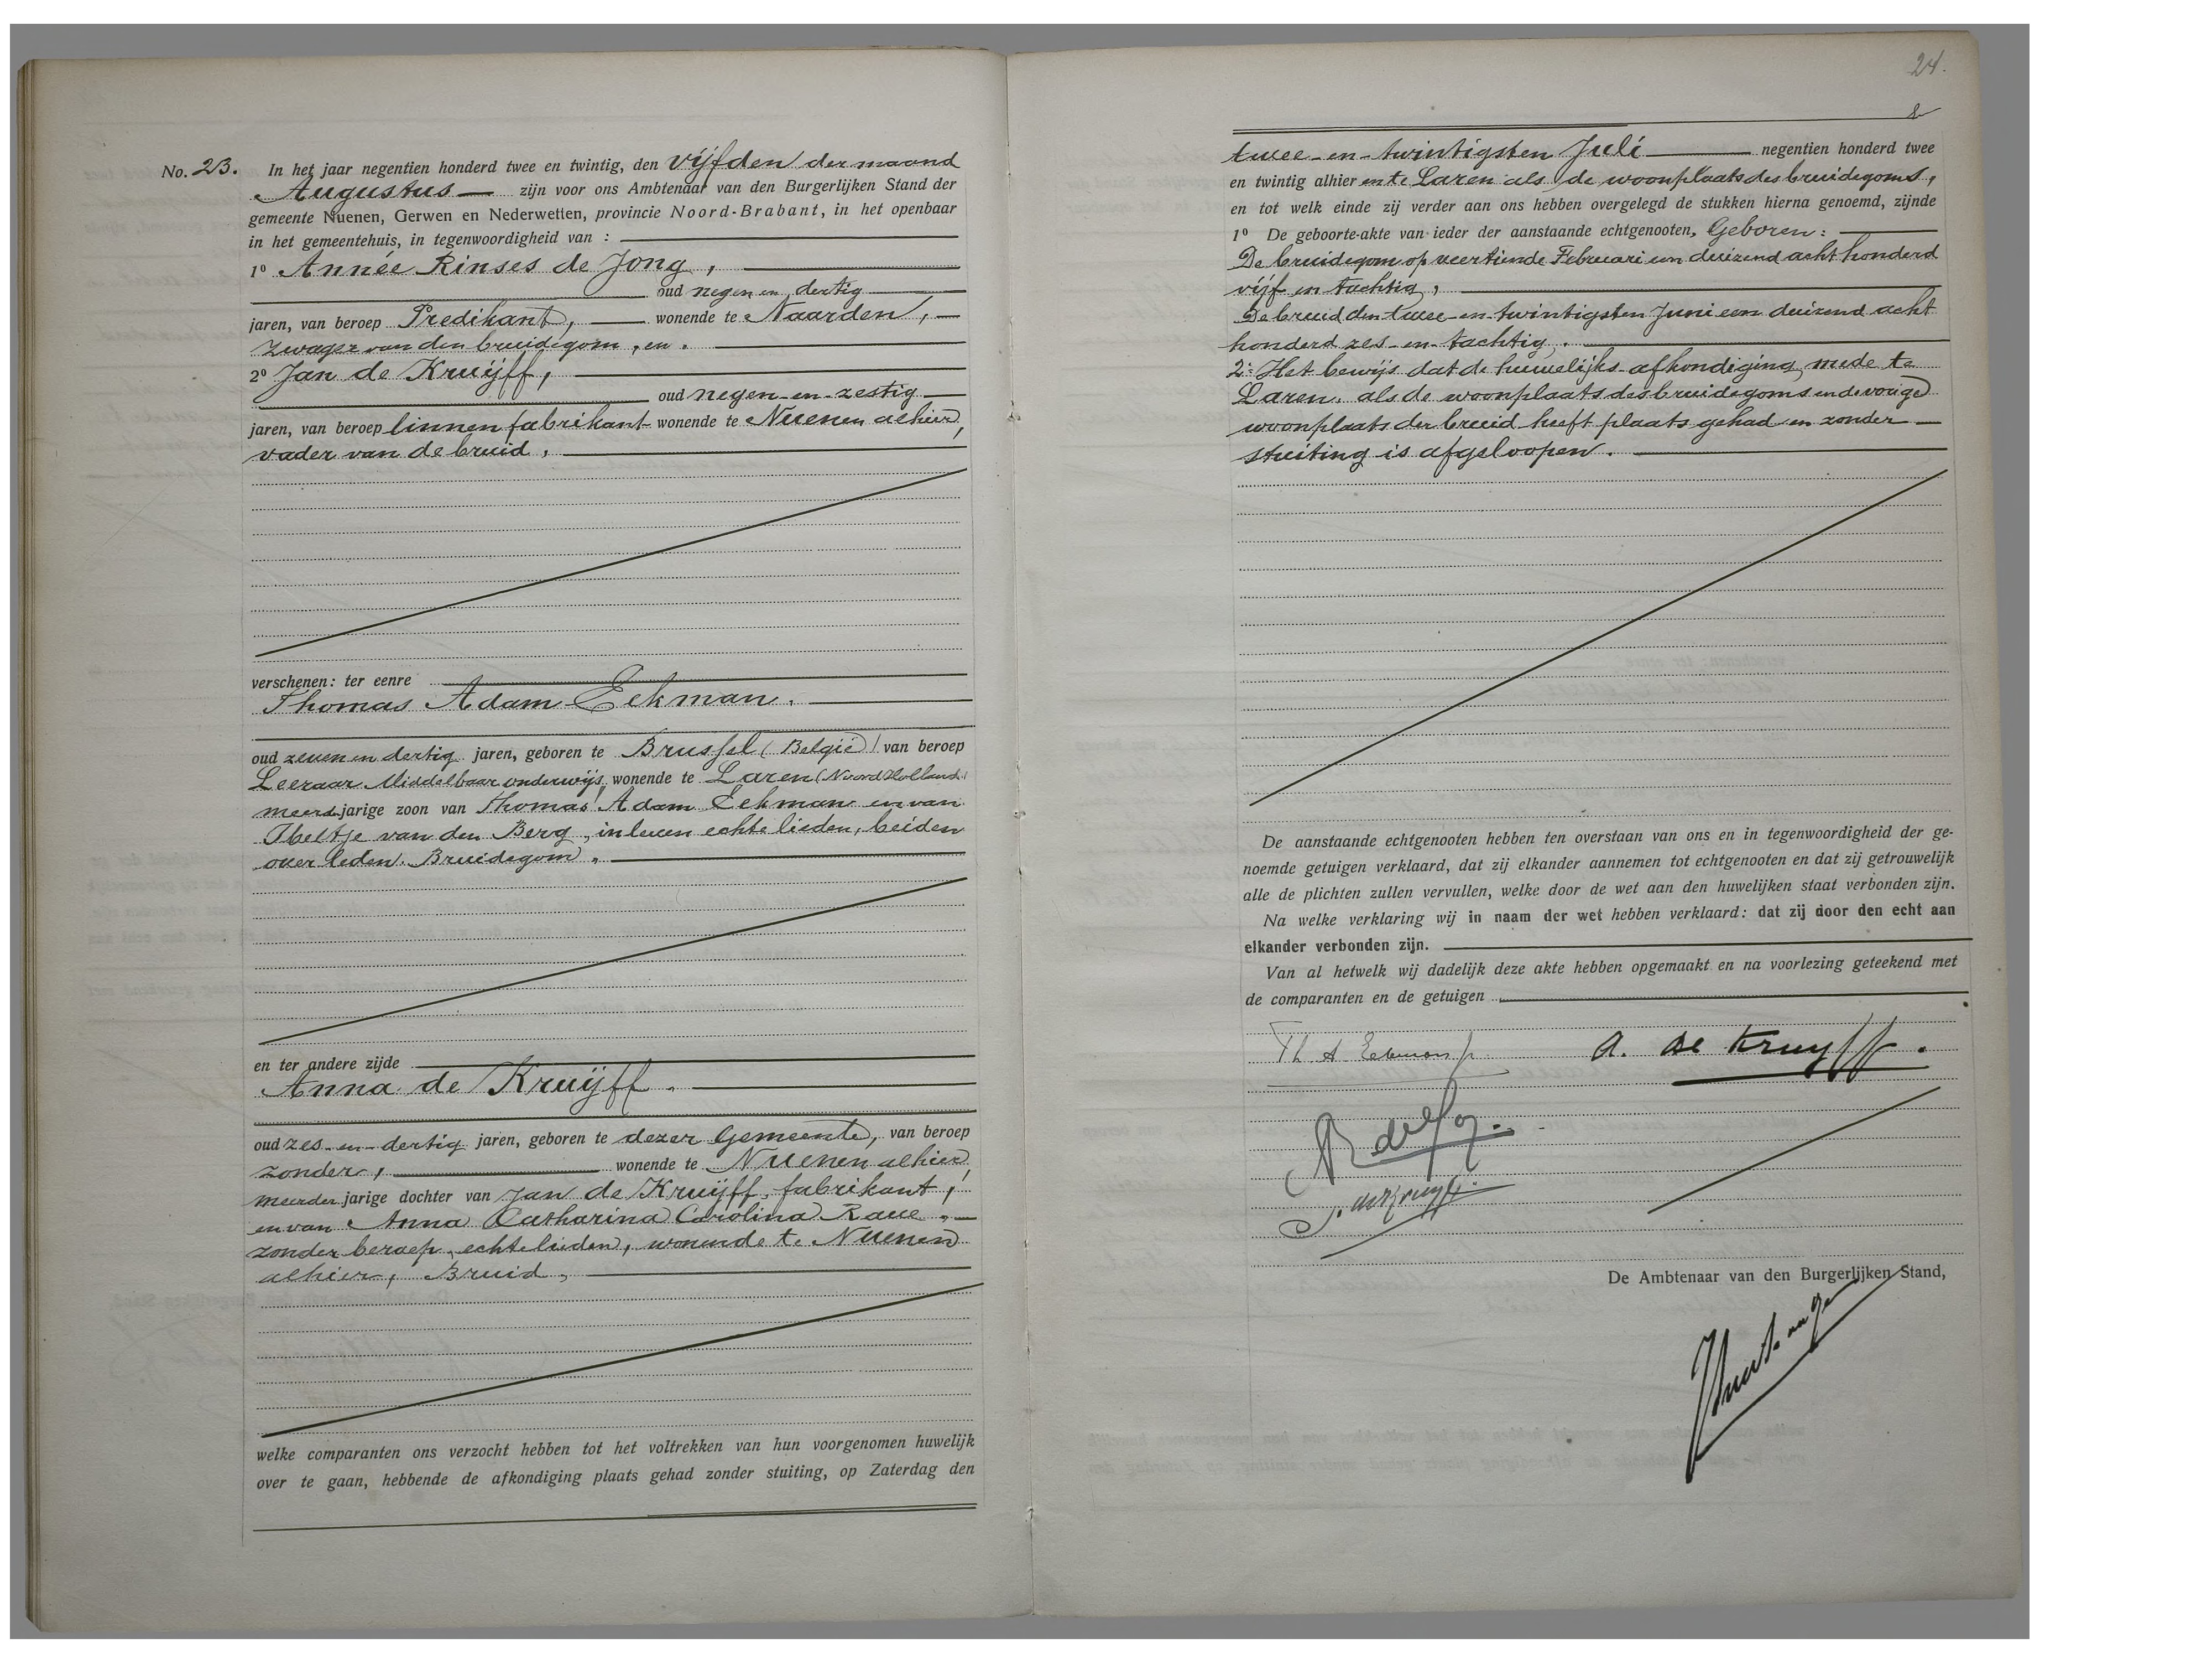 No. 23. In het jaar negentien honderd twee en twintig, den vijfden der maand
Augustus zijn voor ons Ambtenaar van den Burgerlijken Stand der
gemeente Nuenen, Gerwen en Nederwetten, provincie Noord-Brabant, in het openbaar
in het gemeentehuis, in tegenwoordigheid van :
1º Année Rinses de Jong,
oud negen en dertig
jaren, van beroep Predikant, wonende te Naarden,
zwager van den bruidegom, en.
2º Jan de Kruijff,
oud negen-en-zestig
jaren, van beroep linnen fabrikant wonende te Nuenen alhier,
vader van de bruid,
verschenen: ter eenre
Thomas Adam Eekman.
oud zeven en dertig jaren, geboren te Brussel (België) van beroep
Leeraar Middelbaar onderwijs, wonende te Laren (Noord Holland)
meerderjarige zoon van Thomas Adam Eekman en van
van den Berg, in leven echte lieden, beiden
overleden. Bruidegom.
en ter andere zijde
Anna de Kruijff.
oud zes-en-dertig jaren, geboren te dezer Gemeente, van beroep
zonder, wonende te Nuenen alhier,
meerderjarige dochter van Jan de Kruijff, fabrikant,
en van Anna Catharina Carolina Raue,
zonder beroep, echtelieden, wonende te Nuenen
alhier, Bruid,
welke comparanten ons verzocht hebben tot het voltrekken van hun voorgenomen huwelijk
over te gaan, hebbende de afkondiging plaats gehad zonder stuiting, op Zaterdag den
24.
twee-en-twintigsten Juli negentien honderd twee
en twintig alhier en te Laren als de woonplaats des bruidegoms,
en tot welk einde zij verder aan ons hebben overgelegd de stukken hierna genoemd, zijnde
1º De geboorte-akte van ieder der aanstaande echtgenooten, Geboren:
De bruidegom op veertiende Februari een duizend acht honderd
vijf en tachtig,
De bruid den twee-en-twintigsten Juni een duizend acht
honderd zes-en-tachtig.
2º Het bewijs dat de huwelijks-afkondiging mede te
Laren, als de woonplaats des bruidegoms en de vorige
woonplaats der bruid heeft plaats gehad en zonder
stuiting is afgeloopen.
De aanstaande echtgenooten hebben ten overstaan van ons en in tegenwoordigheid der ge-
noemde getuigen verklaard, dat zij elkander aannemen tot echtgenooten en dat zij getrouwelijk
alle de plichten zullen vervullen, welke door de wet aan den huwelijken staat verbonden zijn.
Na welke verklaring wij in naam der wet hebben verklaard: dat zij door den echt aan
elkander verbonden zijn.
Van al hetwelk wij dadelijk deze akte hebben opgemaakt en na voorlezing geteekend met
de comparanten en de getuigen
Th A Eekman jr. A. de Kruyff.
J. de Kruyff.
De Ambtenaar van den Burgerlijken Stand,